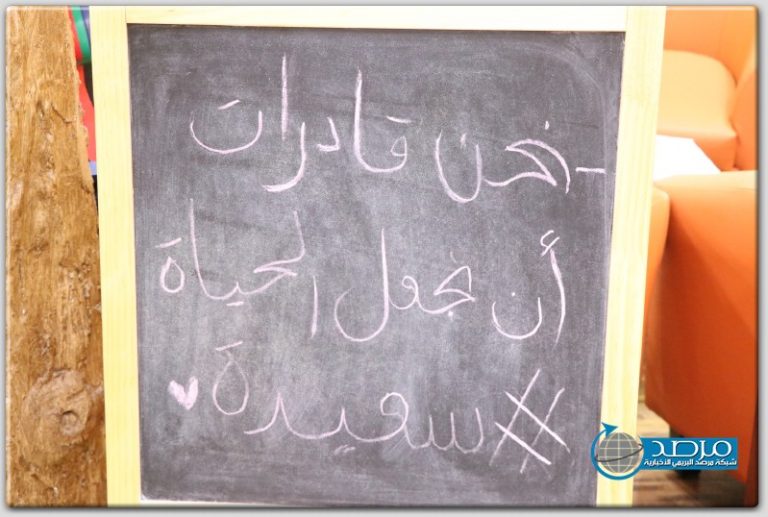 - نحن قادرات
أن نجعل الحياة
#سعيدة
مرصد
شبكة مرصد البريمي الاخبارية